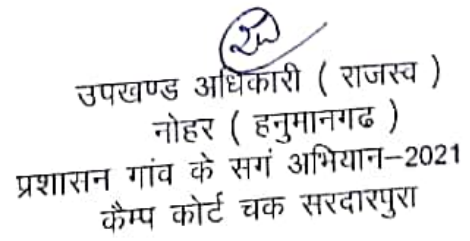 उपखण्ड अधिकारी ( राजस्व )
नोहर ( हनुमानगढ )
प्रशासन गांव के सगं अभियान–2021
कैम्प कोर्ट चक सरदारपुरा